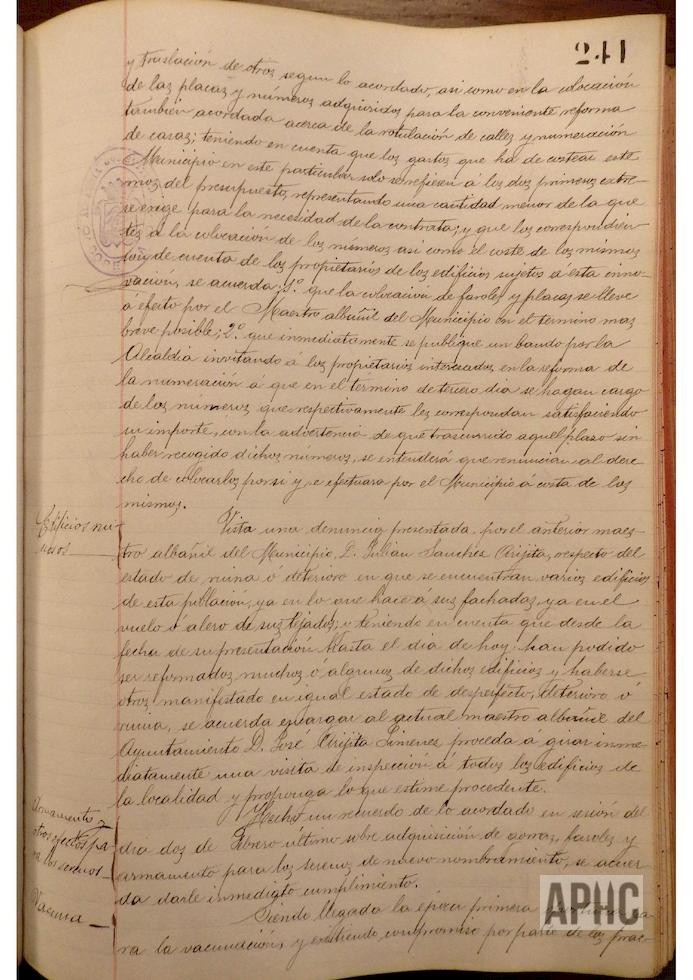 241
y traslación de otros segun lo acordado, asi como en la colocación
de las placas y números adquiridos para la conveniente reforma
tambien acordada acerca de la rotulación de calles y numeración
de casas; teniendo en cuenta que los gastos que ha de costear este
Municipio en este particular solo se refieren á los dos primeros extre-
mos del presupuesto, representando una cantidad menor de la que
se exige para la necesidad de la contrata; y que los correspondien
tes á la colocación de los números asi como el coste de los mismos
son de cuenta de los propietarios de los edificios sujetos á esta inno-
vación, se acuerda: 1º que la colocación de faroles y placas se lleve
á efecto por el Maestro albañil del Municipio en el termino mas
breve posible; 2º que inmediatamente se publique un bando por la
Alcaldia invitando á los propietarios interesados en la reforma de
la numeración á que en el término de tercero dia se hagan cargo
de los números que respectivamente les correspondan satisfaciendo
su importe, con la advertencia de que trascurrido aquel plazo sin
haber recogido dichos numeros, se entenderá que renuncian al dere
cho de colocarlos por si y se efectuara por el Municipio á costa de los
mismos.
Edificios rui-
nosos
Vista una denuncia presentada por el anterior maes-
tro albañil del Municipio, D. Julian Sanchez Arijita, respecto del
estado de ruina ó deterioro en que se encuentran varios edificios
de esta población, ya en lo que hace á sus fachadas, ya en el
vuelo ó alero de sus tejados; y teniendo en cuenta que desde la
fecha de su presentación hasta el dia de hoy han podido
ser reformados muchos ó algunos de dichos edificios y haberse
otros manifestado en igual estado de desperfecto, deterioro ó
ruina, se acuerda encargar al actual maestro albañil del
Ayuntamiento D. José Arijita Gimenez proceda á girar inme
diatamente una visita de inspeccion á todos los edificios de
la localidad y proponga lo que estime procedente.
Armamento y
otros efectos pa-
ra los serenos
Hecho un recuerdo de lo acordado en sesión del
dia dos de Febrero último sobre adquisición de gorras, faroles y
armamento para los serenos de nuevo nombramiento, se acuer
da darle inmediato cumplimiento.
Vacuna
Siendo llegada la época primera
ra la vacunación, y existiendo compromiso por parte de los
APUC